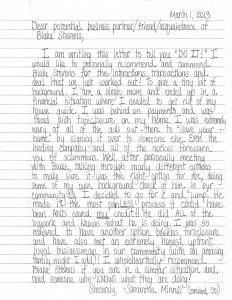 March 1, 2013
Dear potential business partner/friend/acquaintance of
Blake Stevens,
I am writing this letter to tell you "DO IT!" I
would like to personally recommend and commend
Blake Stevens for the interactions, transactions and
deal that we just worked out! To give a tiny bit of
background, I am a single mom and ended up in a
financial situation where I needed to get rid of my
house quick. I was behind on payments and was
faced with foreclosure on my home. I was extremely
wary of all of the ads out there to "save your
home" by signing it over to someone else. Even the
lending company and all of the notices forewarn
you of scammers. Well after personally meeting
with Blake, talking through many different options
to make sure it was the right option for me, doing
some of my own background check of him in our
community, I decided to go for it and "home." He
made it the most painless process it could have
been AND saved my credit!! He did ALL of the
legwork and knows what he is doing. I was so
relieved to have another option besides foreclosure
and have also met an extremely honest, upfront,
loyal businessman in our community (with an amazing
family might I add!) I wholeheartedly recommend
Blake Stevens if you are in a similar situation and
need someone who KNOWS what they are doing!
Sincerely, Samantha (Loveland, CO)